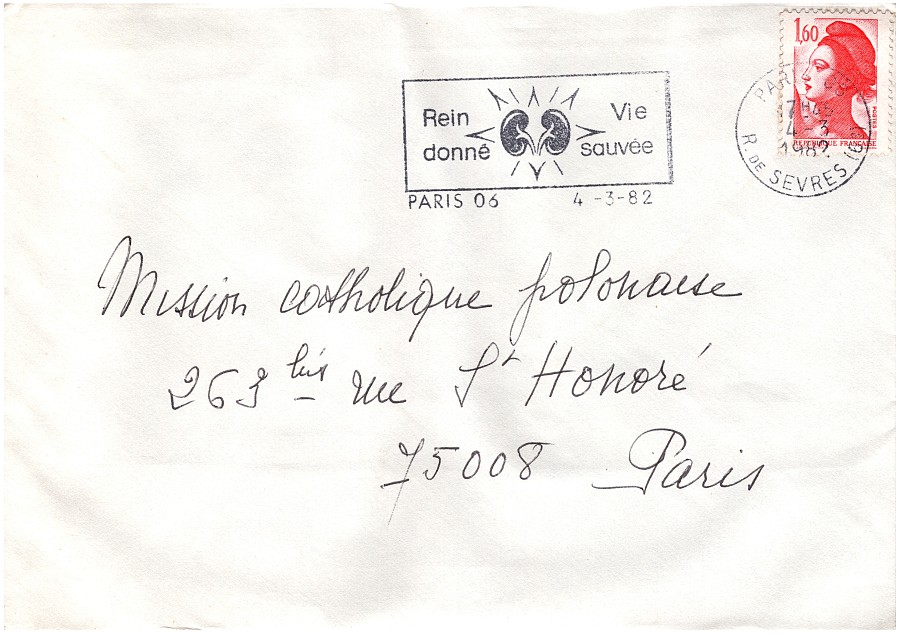 1,60
POSTES
REPUBLIQUE FRANÇAISE
PARIS
4-3
1982
R. DE SEVRES (6e)
Rein
donné
Vie
sauvée
PARIS 06 4 -3-82
Mission catholique polonaise
263 bis rue St Honoré
75008 Paris